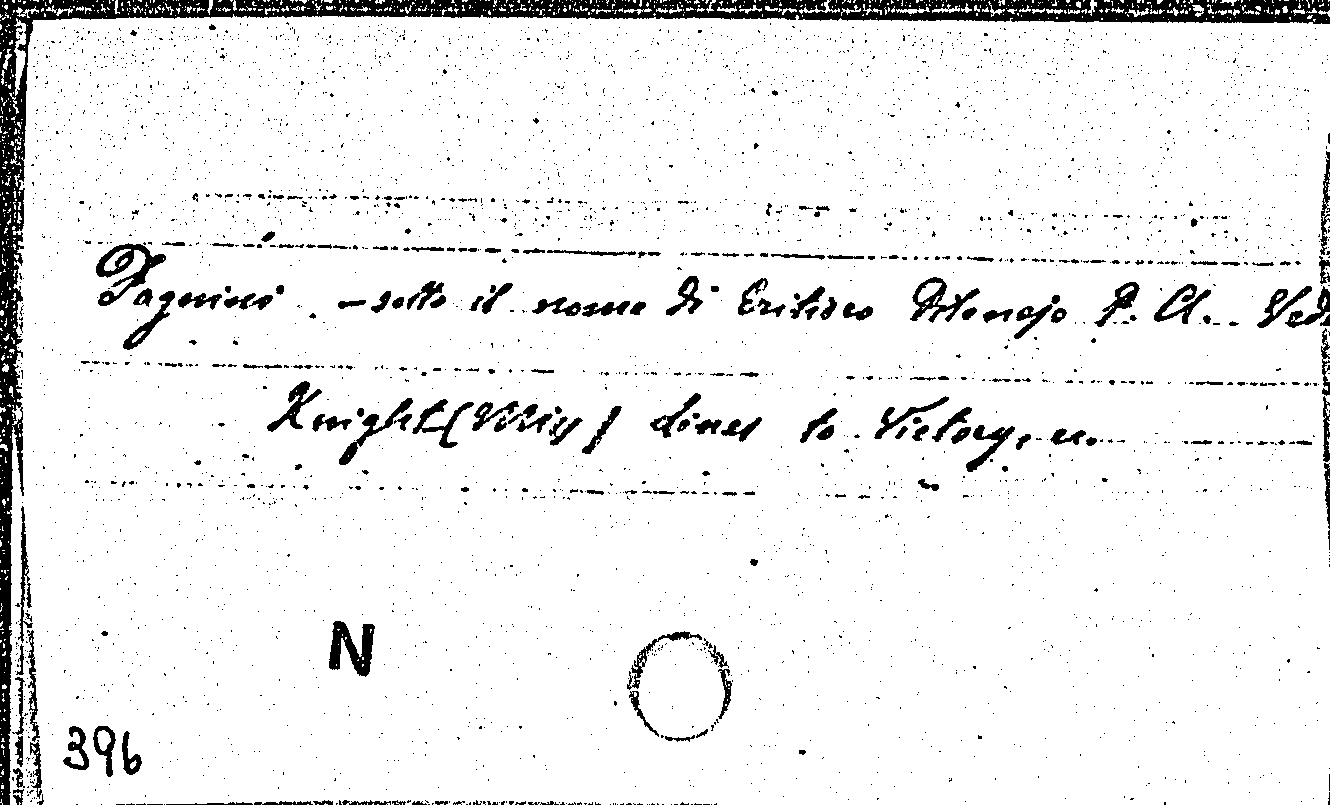 Pagnini - sotto il nome di Eritisco Pilenejo P. A. Ved
Knight (Miss) Lines to Victory, ec.
N
396